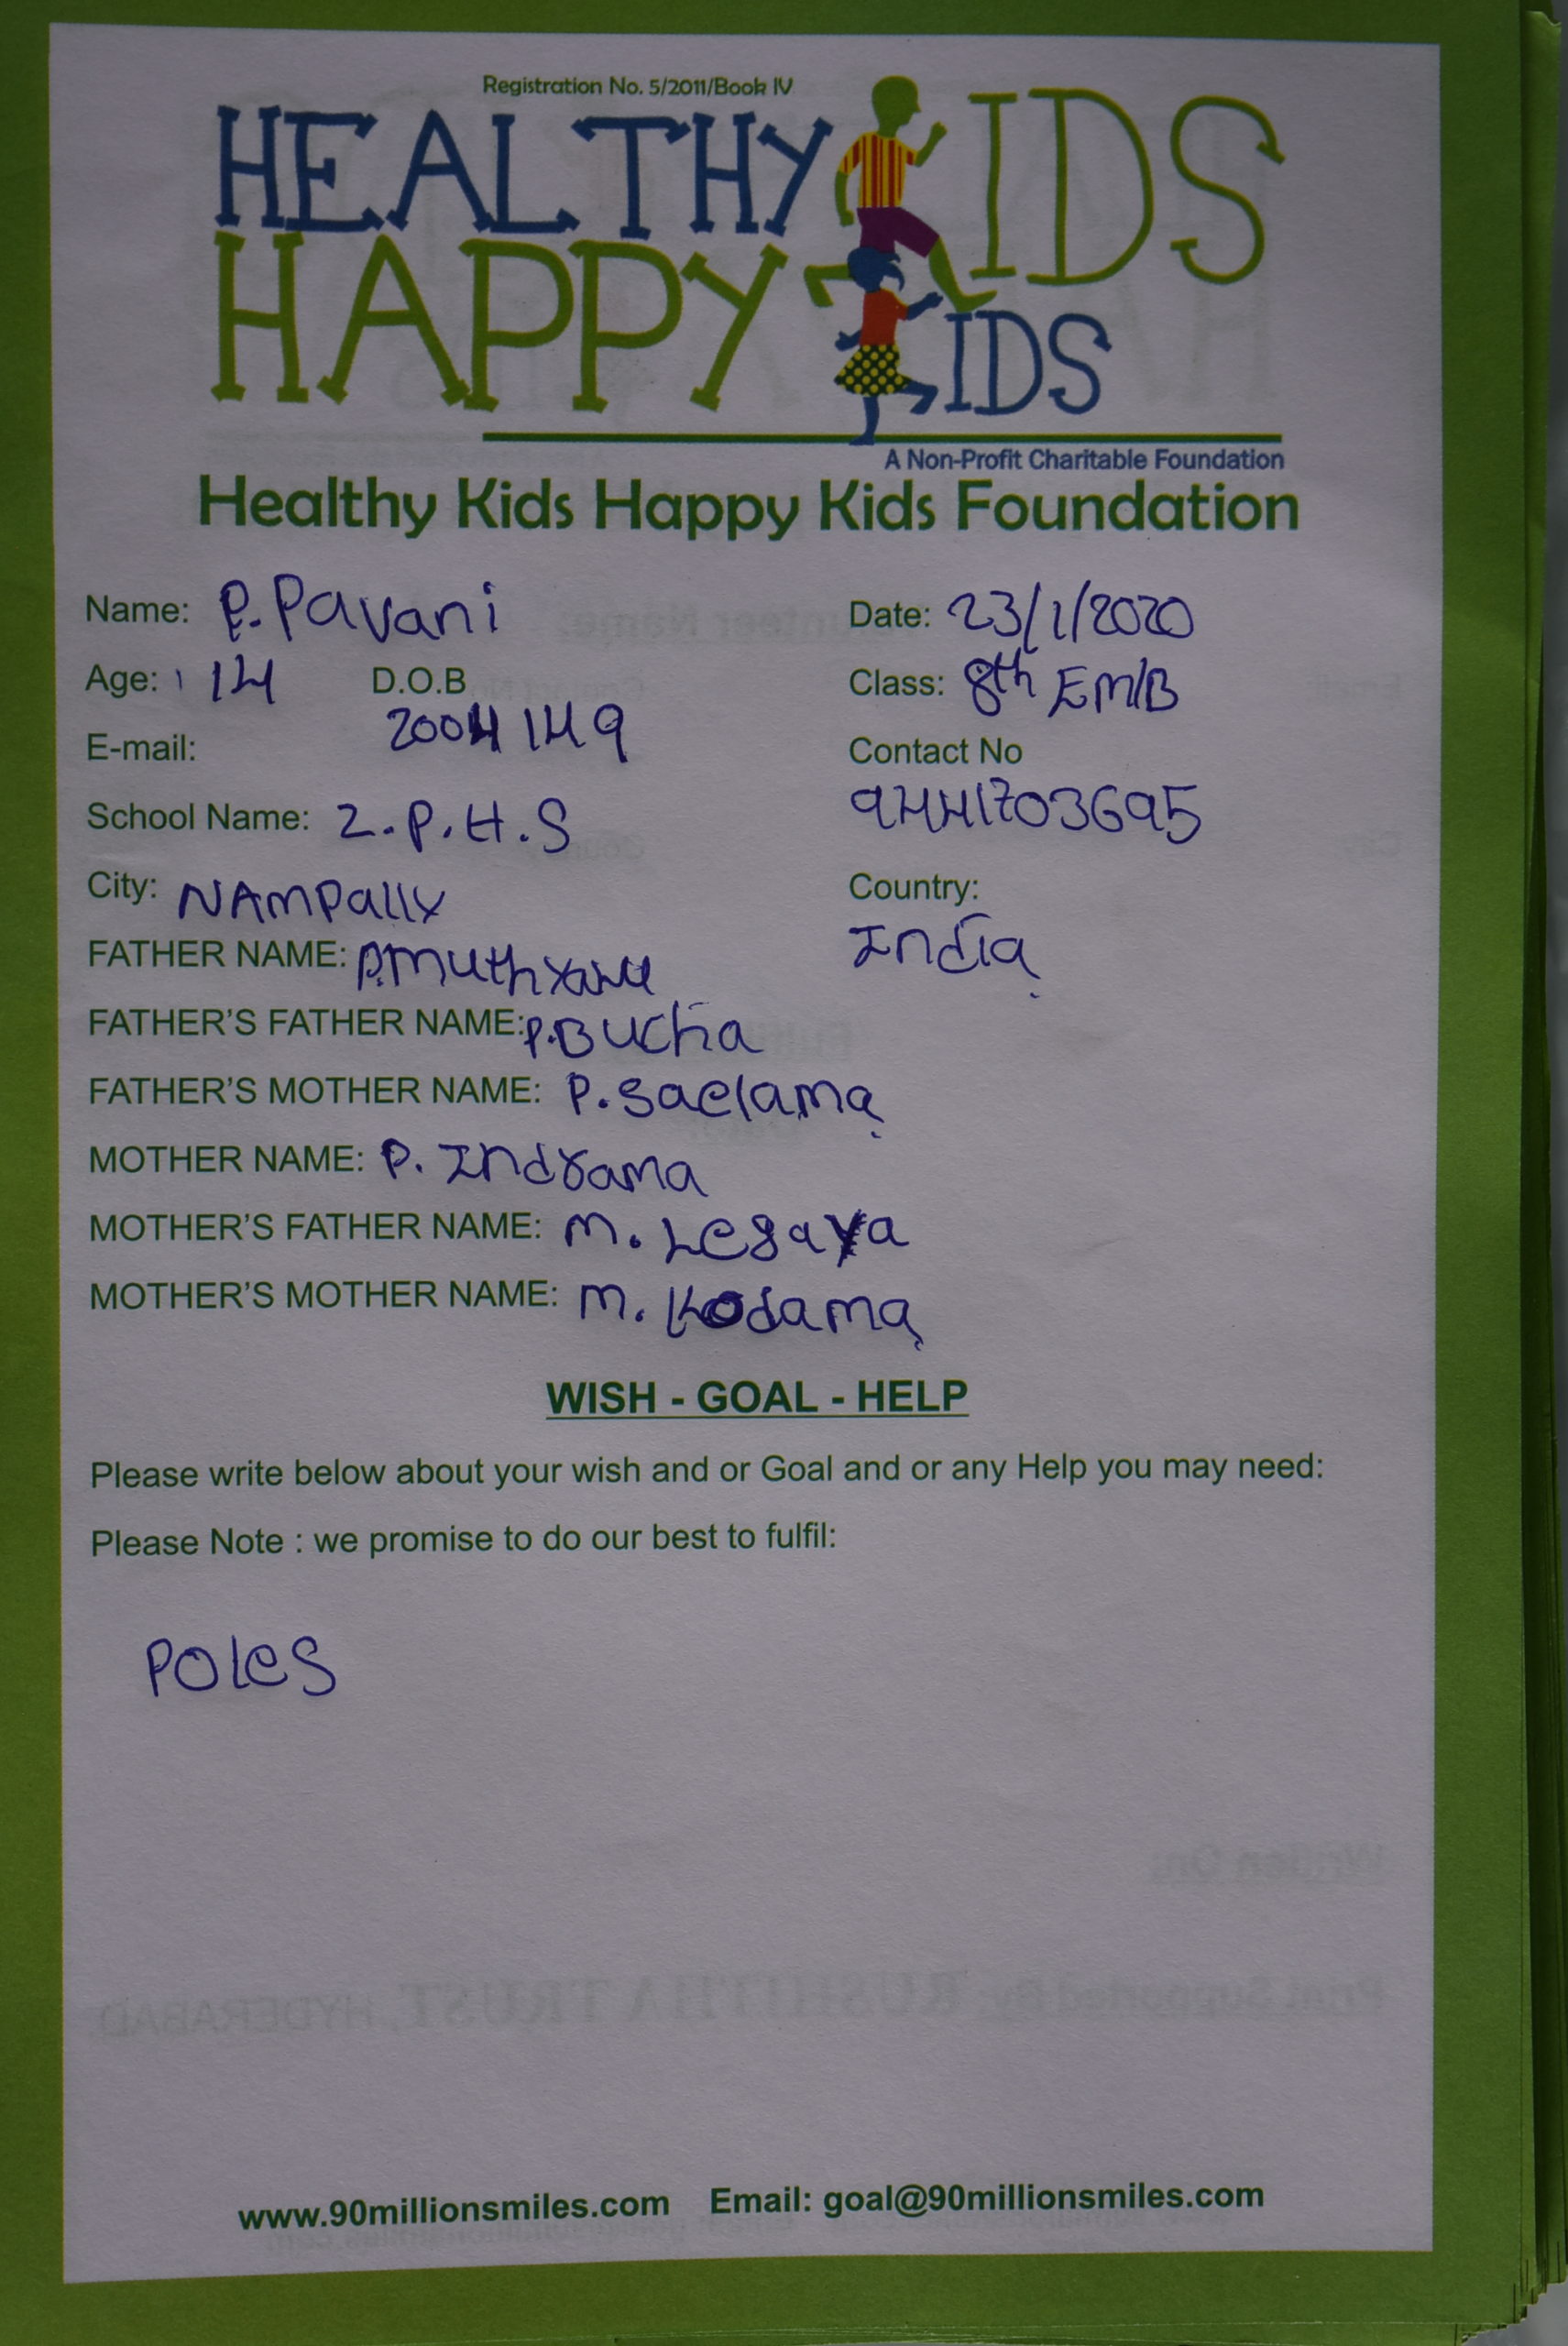 Registration No. 5/2011/Book IV
HEALTHY KIDS
HAPPY KIDS
A Non-Profit Charitable Foundation
Healthy Kids Happy Kids Foundation
Name: P. Pavani Date: 23/1/2020
Age: 14 D.O.B Class: 8th EM/B
2004 14 9
E-mail: Contact No
9441703695
School Name: Z.P.H.S
City: NAmPally Country:
India
FATHER NAME:
FATHER'S FATHER NAME: P.Buchia
FATHER'S MOTHER NAME: P. Saelama
MOTHER NAME: P. Indrama
MOTHER'S FATHER NAME: M. Legaya
MOTHER'S MOTHER NAME: M. Kodama
WISH - GOAL - HELP
Please write below about your wish and or Goal and or any Help you may need:
Please Note : we promise to do our best to fulfil:
Poles
www.90millionsmiles.com Email: goal@90millionsmiles.com